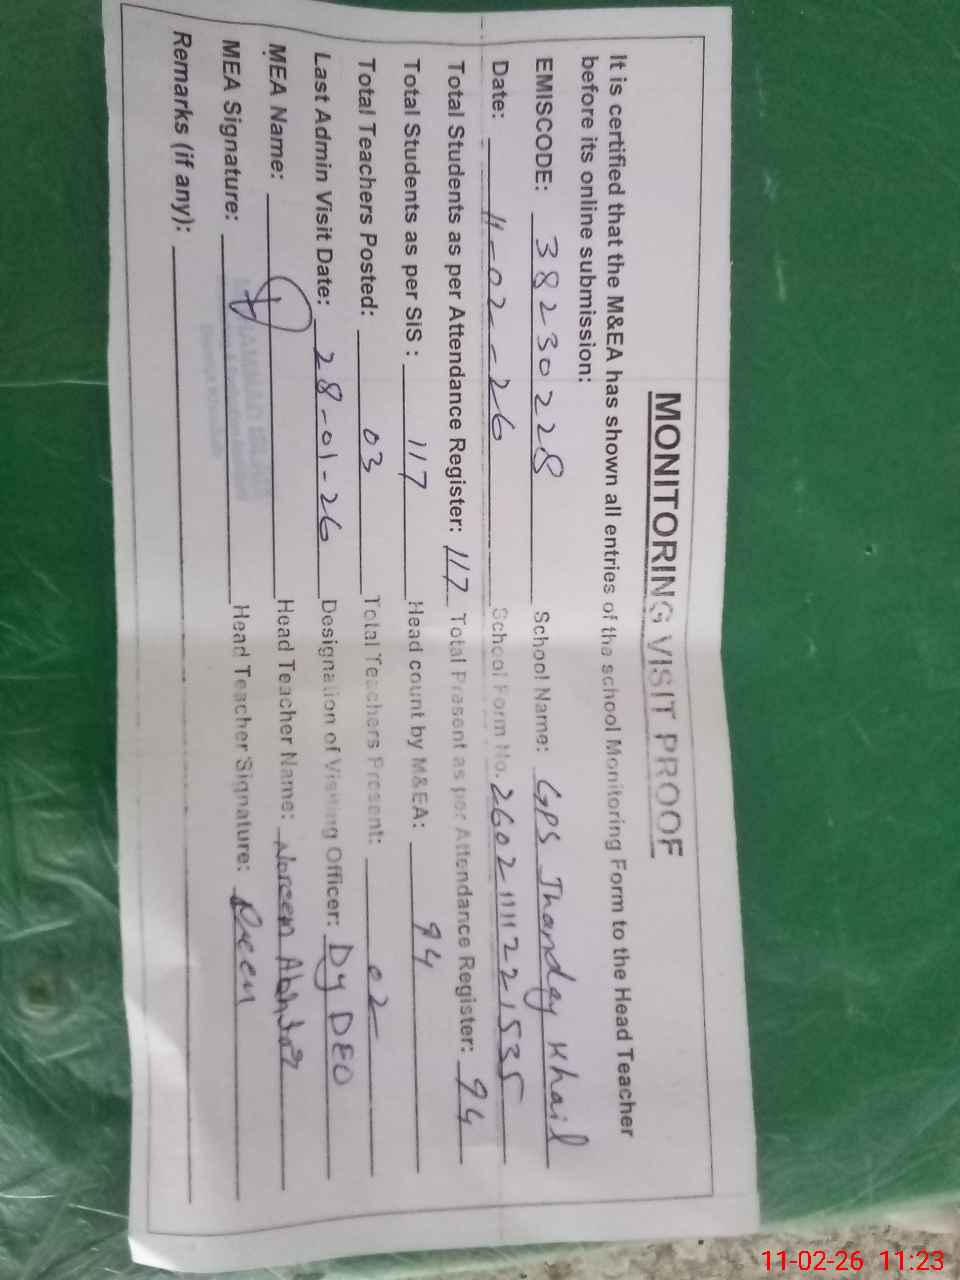 MONITORING VISIT PROOF
It is certified that the M&EA has shown all entries of the school Monitoring Form to the Head Teacher
before its online submission:
EMISCODE: 38230228 School Name: GPS Thanday Khail
Date: 11-02-26 School Form No. 26021111221535
Total Students as per Attendance Register: 117 Total Present as per Attendance Register: 94
Total Students as per SiS : 117 Head count by M&EA: 94
Total Teachers Posted: 03 Total Teachers Present: 02
Last Admin Visit Date: 28-01-26 Designation of Visiting Officer: Dy DEO
MEA Name: Head Teacher Name: Noreen Akhtar
MEA Signature: Head Teacher Signature:
Remarks (if any):
11-02-26 11:23